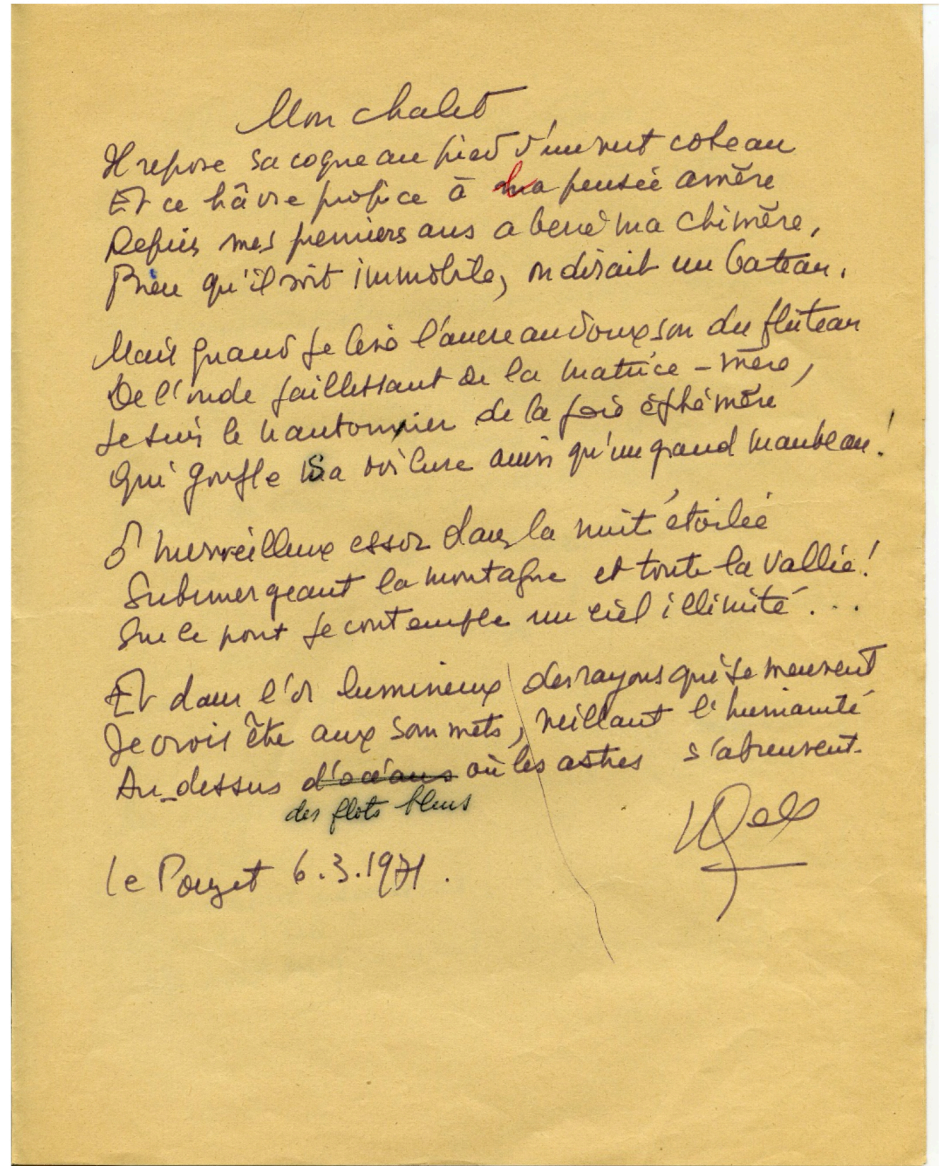 Mon chalet
Il repose sa coque au pied d'un vert coteau
Et ce hâvre propice à la pensée amère
Depuis mes premiers ans a bercé ma chimère,
Bien qu'il soit immobile, on dirait un bateau.
Mais quand je lève l'ancre au doux son du flûteau
De l'onde jaillissant de la matrice-mère,
Je suis le nautonnier de la joie éphémère
Qui gonfle sa voilure ainsi qu'un grand manteau!
Ô merveilleux essor dans la nuit étoilée
Submergeant la montagne et toute la vallée!
Sur le pont je contemple un ciel illimité...
Et dans l'or lumineux des rayons qui se meuvent
Je crois être aux sommets, veillant l'humanité
Au-dessus d'océans où les astres s'abreuvent.
des flots bleus
Le Pouget 6.3.1971.